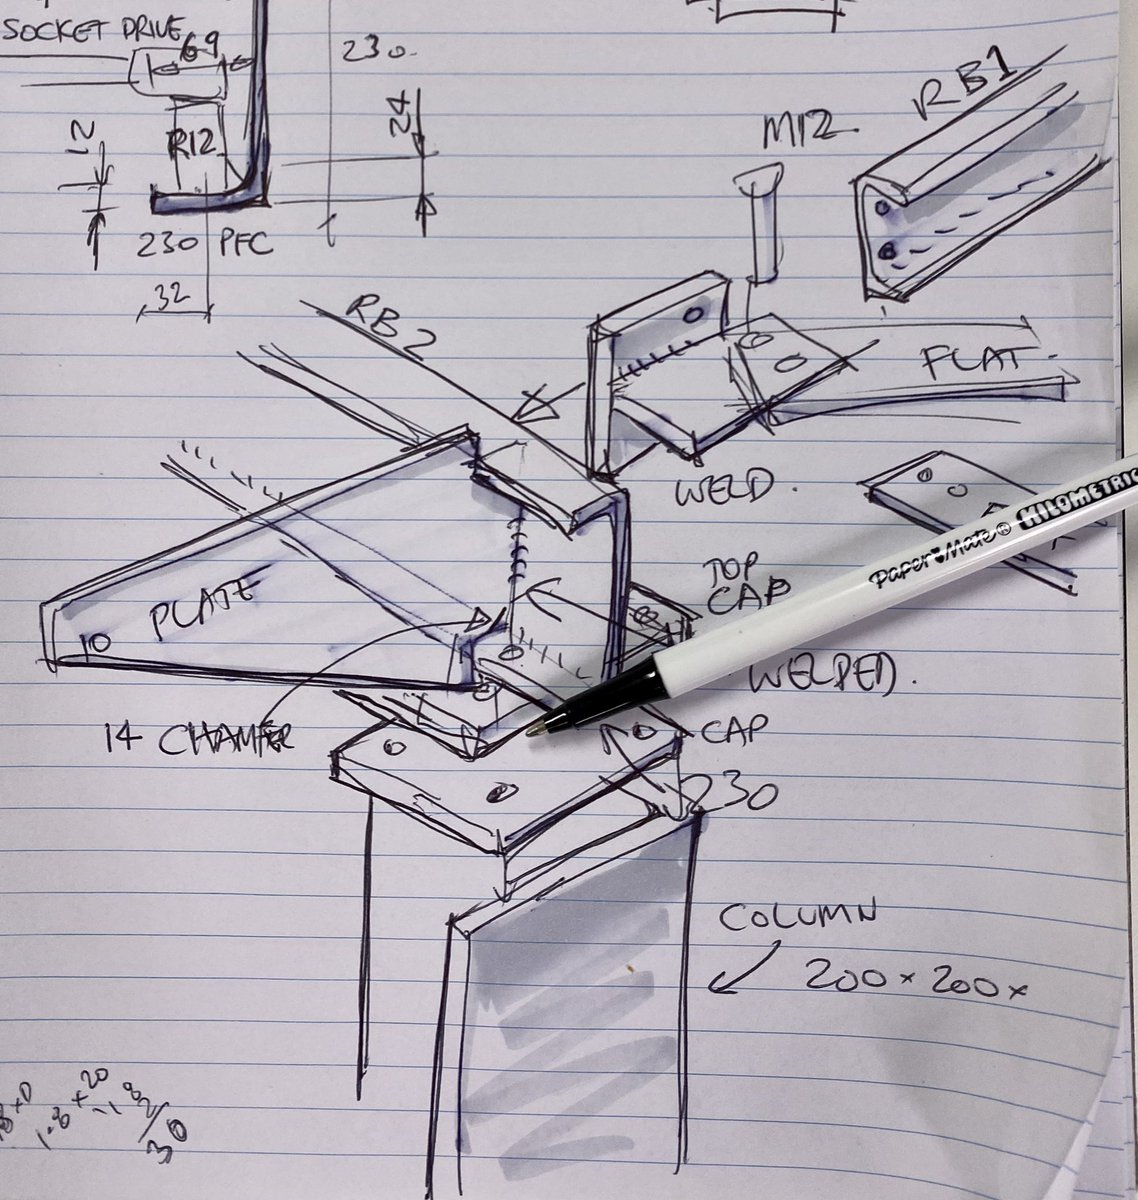 SOCKET DRIVE
69
230
24
12
R12
230 PFC
32
M12
RB1
RB2
FLAT
WELD.
Paper Mate® KILOMETRIC
TOP
CAP
PLATE
10
WELDED.
14 CHAMFER
CAP
230
COLUMN
200 x 200 x